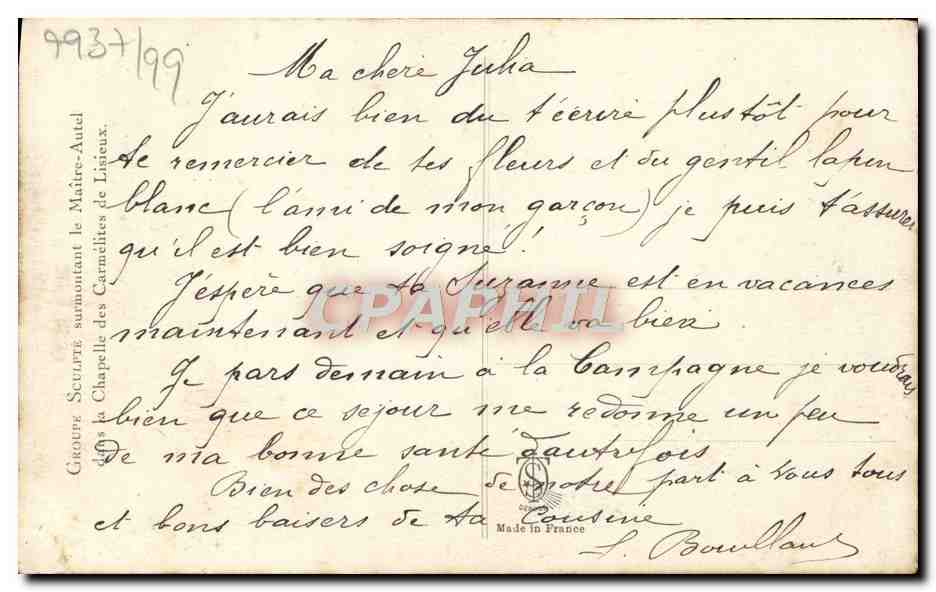 9937/99
Ma chere Julia
J'aurais bien du t'écrire plustôt pour
te remercier de tes fleurs et du gentil lapin
blanc (l'ami de mon garçon) je puis t'assurer
qu'il est bien soigné !
J'éspère que ta Suzanne est en vacances
maintenant et qu'elle va bien.
Je pars demain à la Campagne je voudrais
bien que ce sejour me redonne un peu
de ma bonne santé d'autrefois
Bien des chose de notre part à Vous tous
et bons baisers de ta Cousine
GROUPE SCULPTÉ surmontant le Maître-Autel
dans la Chapelle des Carmélites de Lisieux.
Made in France
CPAPHIL